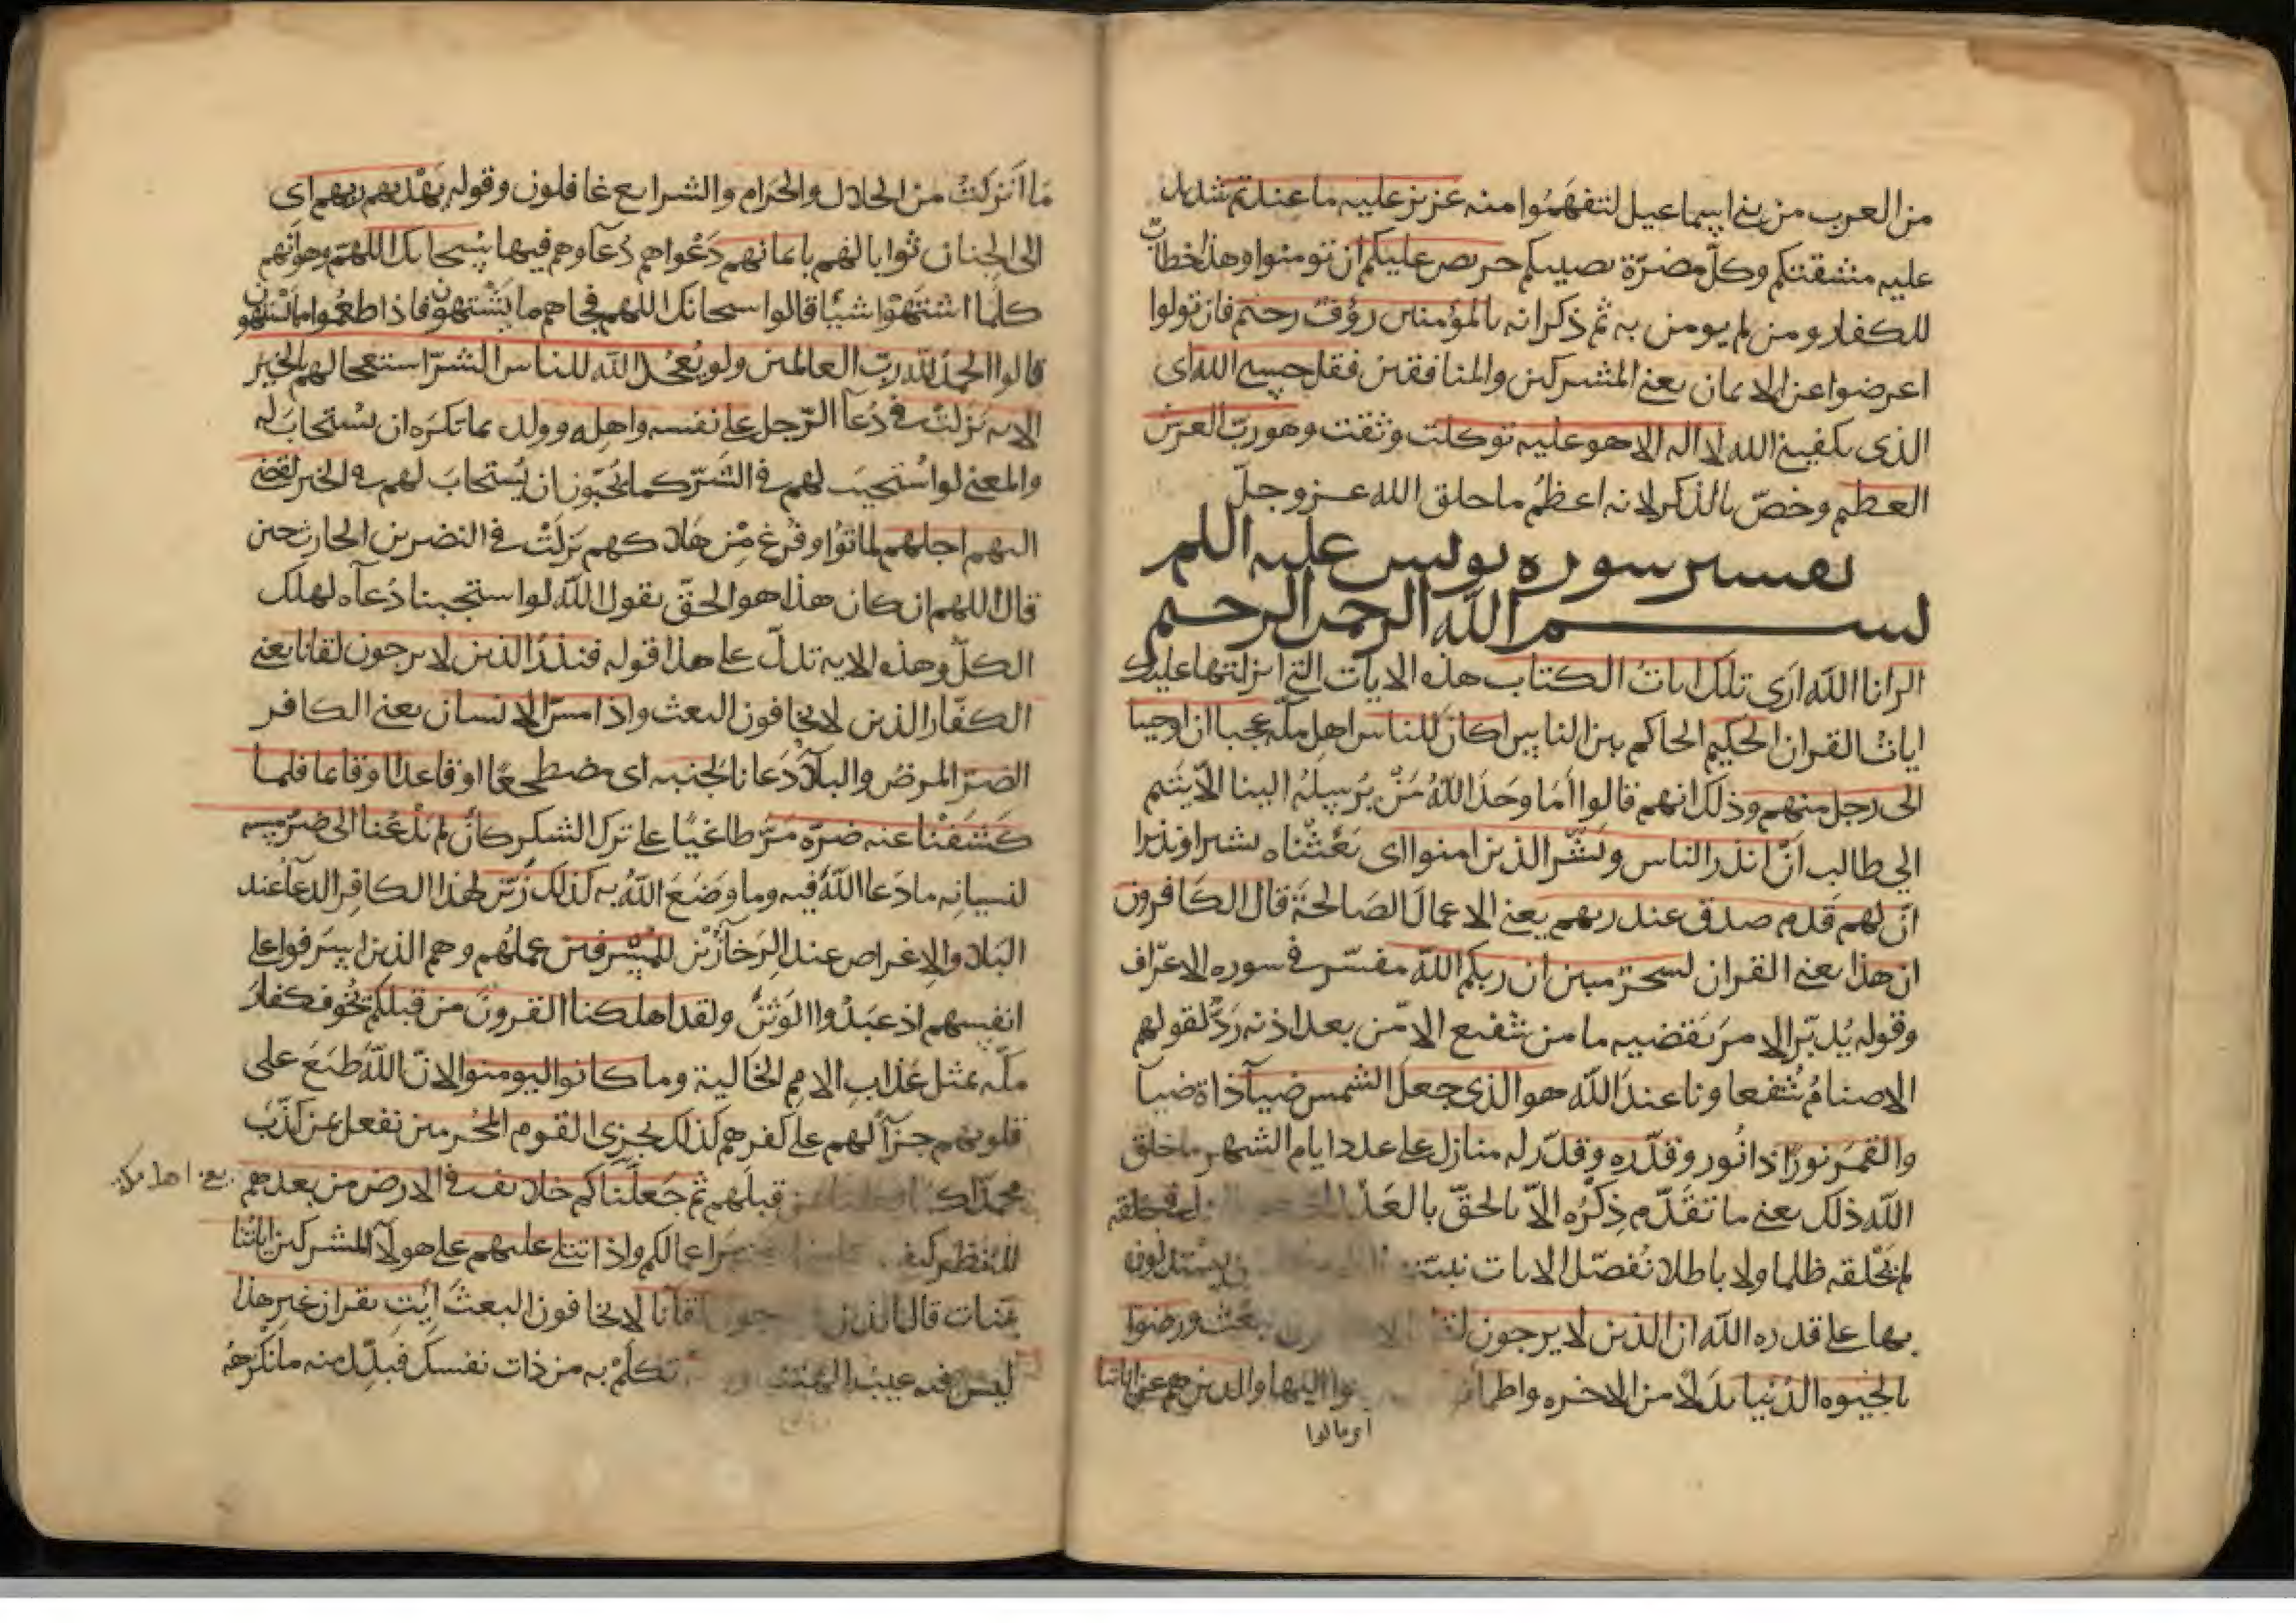 من العرب من بني اسماعيل لتفهموا منه عزيز عليه ما عنتم شديد
عليه مشقتكم وكلّ مضرّة تصيبكم حريص عليكم ان تومنوا وهذا خطاب
للكفار ومن لم يومن به ثم ذكر انه بالمؤمنين رؤف رحيم فان تولوا
اعرضوا عن الايمان يعني المشركين والمنافقين فقل حسبي الله اى
الذى يكفيني الله لا اله الا هو عليه توكلت وثقت وهو ربّ العرش
العظيم وخصّ بالذكر لانه اعظمُ ما خلق الله عز وجلّ
تفسير سوره يونس عليه السلم
بسم الله الرحمن الرحيم
الر انا الله ارى تلك ايات الكتاب هذه الايات التي انزلتها عليك
ايات القران الحكيم الحاكم بين الناس اكان للناس اهل مكه عجبا ان اوحينا
الى رجل منهم وذلك انهم قالوا أما وجد الله من يرسله الينا الا يتيم
ابي طالب ان انذر الناس وبشّر الذين امنوا اى بعثناه بشيرا ونذيرا
انّ لهم قدم صدق عند ربهم يعني الاعمال الصالحة قال الكافرون
ان هذا يعني القران لسحر مبين ان ربكم الله مفسّر في سوره الاعراف
وقوله يُدبّر الامر يَقضيه ما من شفيع الا من بعد اذنه ردٌّ لقولهم
الاصنامُ شُفعاونا عند الله هو الذى جعل الشمس ضياءً ذاة ضيا
والقمر نورًا ذا نُور وقدّره وقدّر له منازل على عدد ايام الشهر ما خلق
الله ذلك يعني ما تقدّم ذِكْرُه الاّ بالحقّ بالعَدْل
لم يَخْلقه ظلما ولا باطلا نُفصّل الايات نبيّن يستدلون
بها على قدره الله ان الذين لا يرجون ورضوا
بالحيوه الدُنيا بدَلًا من الاخره واطمأنوا اليها والذين هم عن اياتنا
اى مالوا
ما انزلتُ من الحلال والحرام والشرايع غافلون وقوله يَهْديهم ربهم اى
الى الجنان ثوابا لهم بايمانهم دَعْواهم دُعآوهم فيها سُبحانك اللهم وهو انهم
كلما اشتَهَوْا شيًا قالوا سبحانك اللهم فجاهم ما يَشْتهون فاذا طعموا مما يشتهون
قالوا الحمد لله ربّ العالمين ولو يُعجّل الله للناس الشرّ استعجالهم بالخير
الايه نزلت في دُعآ الرّجل على نفسه واهله وولده بما تكره ان يُستجابَ له
والمعني لو استُجيبَ لهم في الشرّ كما يُحبّون ان يُستجابَ لهم في الخير لقضي
اليهم اجلهم لماتُوا وفُرغ مِنْ هلاكهم نزلتْ في النضر بن الحارث حين
قال اللهم ان كان هذا هو الحقّ يقول الله لو استجبنا دُعآه لهلك
الكلّ وهذه الايه تدلّ على هذا قوله فنذر الذين لا يرجون لقانا يعني
الكفّار الذين لا يخافون البعث واذا مسّ الانسان يعني الكافر
الضرّ المرضُ والبلآ دَعانا لجنبه اى مضطجعًا او قاعدًا او قايما فلما
كشَفْنا عنه ضرّه مَرّ طاغيًا على ترك الشكر كان لم يَدْعُنا الى ضرّ مسه
لنسيانِه ما دَعا اللهَ فيه وما وضَعَ اللهُ به كذلك زُيّن لهذا الكافِر الدعآ عند
البلا والاعراض عند الرَخآ زُيّن للمُسْرفين عملهم وهم الذين اسرفوا على
انفسهم اذ عبَدُوا الوَثنَ ولقد اهلكنا القرونَ من قبلكم تخوف كفار
مكّه بمثل عَذابِ الامم الخالية وما كانوا ليومنوا لانّ اللهَ طبَعَ على
قلوبهم جزآً لهم على كفرهم كذلك نجزى القوم المجرمين نفعل بمن كذّبَ
محمدًا قبلَهم ثم جَعلناكم خلائف في الارض من بعدهم يعني اهل مكه
لننظر كيف اعمالكم واذا تتلى عليهم على هولآ المشركين اياتُنا
بينات قال الذين لا يخافون البعثَ ائت بقران غير هذا
ليس فيه عيبُ الهتنا تكلّمْ به من ذات نفسك فبدّل منه ما نكرهُه